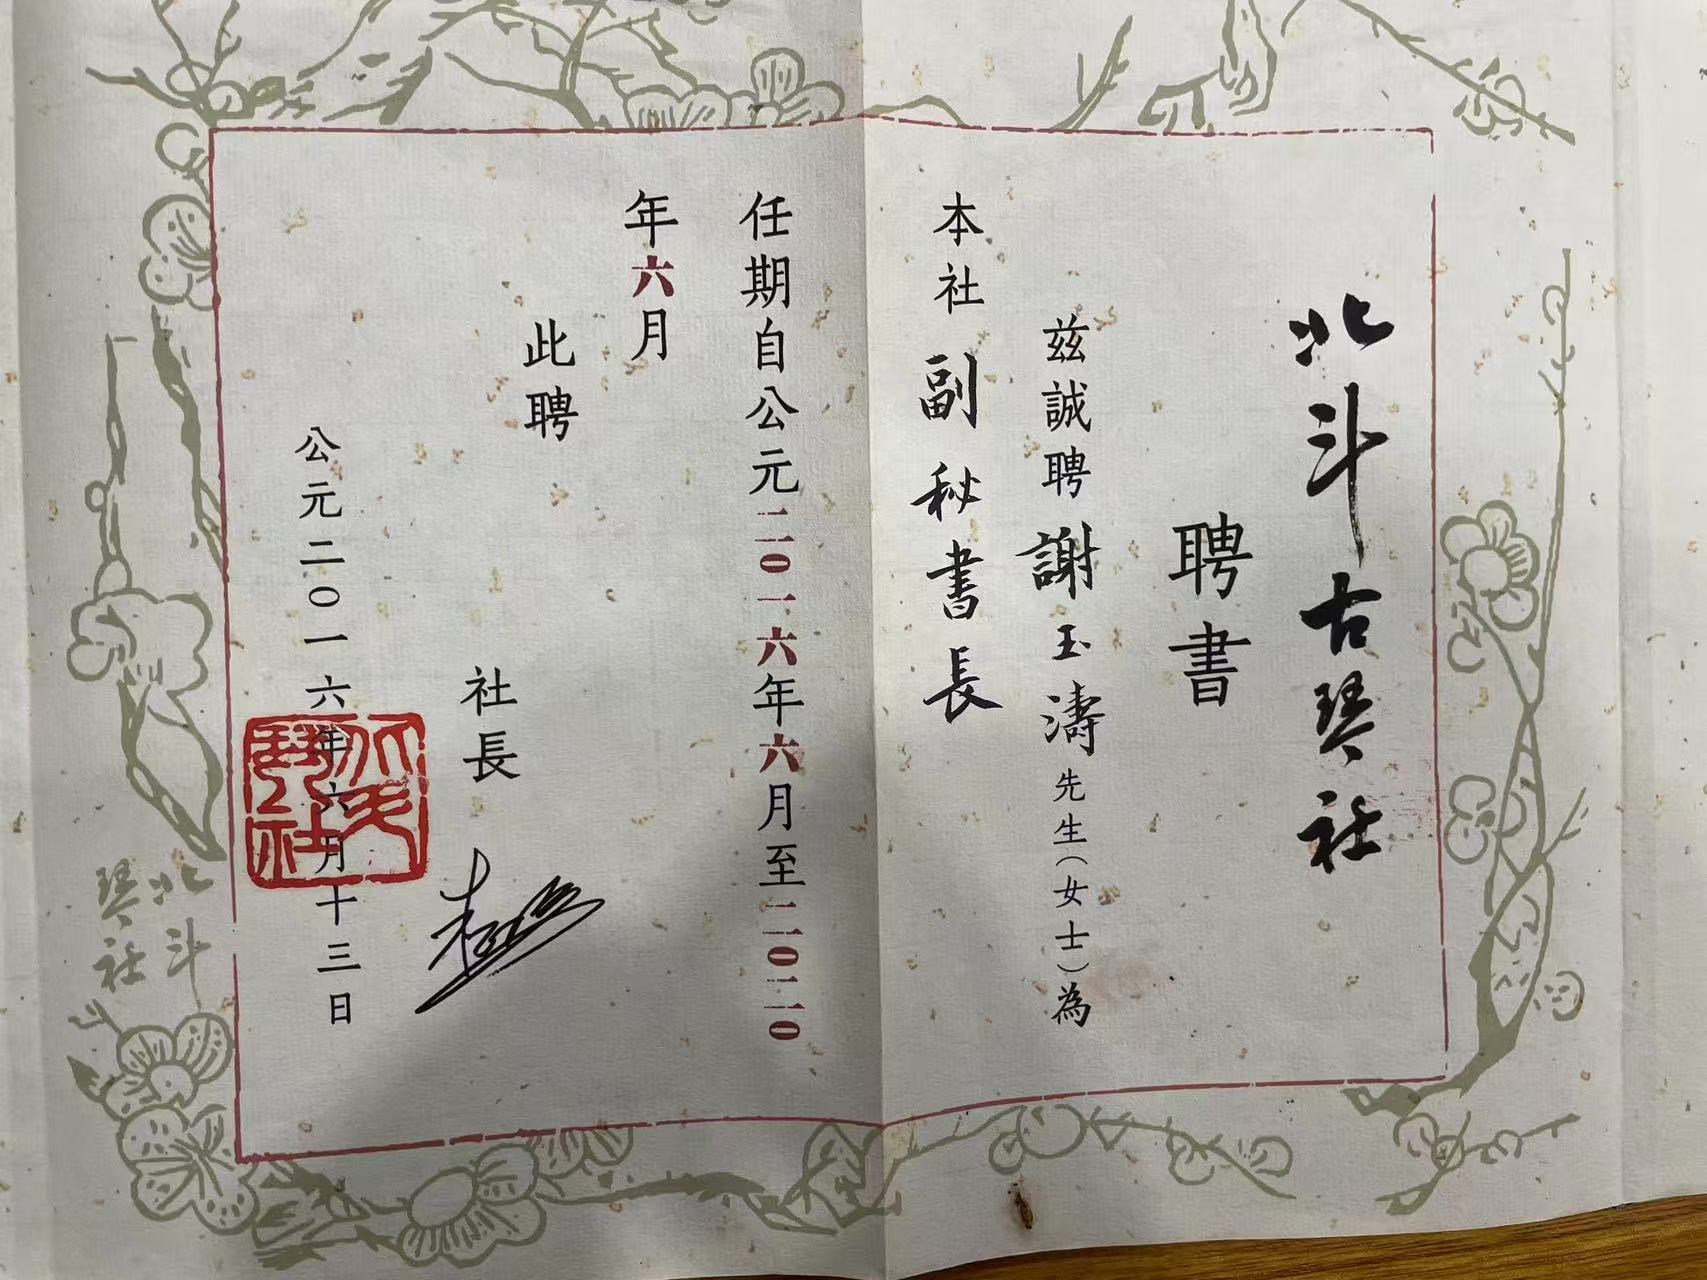 北斗古琴社
聘書
兹誠聘謝玉濤先生(女士)為
本社副秘書長
任期自公元二〇一六年六月至二〇二〇
年六月
此聘
社長
公元二〇一六年六月十三日
北斗
琴社